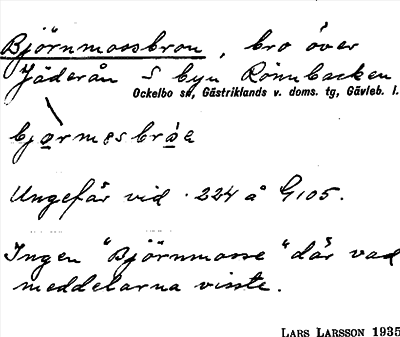 Björnmossbron, bro över
Jäderån S byn Rönnbacken
Ockelbo sn, Gästriklands v. doms. tg, Gävleb. l.
bjo̱rmɵsbrå̱a
Ungefär vid .224 å G105.
Ingen "Björnmosse" där vad
meddelarna visste.
LARS LARSSON 1935